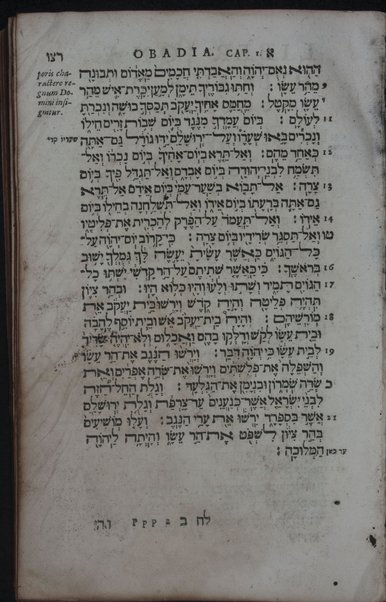 רצו OBADIA. CAP. 1. א
poris cha-
ractere re-
gnum Do-
mini insi-
gnitur.
הַהוּא נְאֻם־יְהוָה וְהַאֲבַדְתִּי חֲכָמִים מֵאֱדוֹם וּתְבוּנָה
9 מֵהַר עֵשָׂו׃ וְחַתּוּ גִבּוֹרֶיךָ תֵּימָן לְמַעַן יִכָּרֶת־אִישׁ מֵהַר
י עֵשָׂו מִקָּטֶל׃ מֵחֲמַס אָחִיךָ יַעֲקֹב תְּכַסְּךָ בוּשָׁה וְנִכְרַתָּ
11 לְעוֹלָם׃ בְּיוֹם עֲמָדְךָ מִנֶּגֶד בְּיוֹם שְׁבוֹת זָרִים חֵילוֹ
וְנָכְרִים בָּאוּ שְׁעָרָו וְעַל־יְרוּשָׁלִַם יַדּוּ גוֹרָל גַּם־אַתָּה
שעריו קרי
12 כְּאַחַד מֵהֶם׃ וְאַל־תֵּרֶא בְיוֹם־אָחִיךָ בְּיוֹם נָכְרוֹ וְאַל־
תִּשְׂמַח לִבְנֵי־יְהוּדָה בְּיוֹם אָבְדָם וְאַל־תַּגְדֵּל פִּיךָ בְּיוֹם
13 צָרָה׃ אַל־תָּבוֹא בְשַׁעַר־עַמִּי בְּיוֹם אֵידָם אַל־תֵּרֶא
גַם־אַתָּה בְּרָעָתוֹ בְּיוֹם אֵידוֹ וְאַל־תִּשְׁלַחְנָה בְחֵילוֹ בְּיוֹם
14 אֵידוֹ׃ וְאַל־תַּעֲמֹד עַל־הַפֶּרֶק לְהַכְרִית אֶת־פְּלִיטָיו
טו וְאַל־תַּסְגֵּר שְׂרִידָיו בְּיוֹם צָרָה׃ כִּי־קָרוֹב יוֹם־יְהוָה עַל־
כָּל־הַגּוֹיִם כַּאֲשֶׁר עָשִׂיתָ יֵעָשֶׂה לָּךְ גְּמֻלְךָ יָשׁוּב
16 בְּרֹאשֶׁךָ׃ כִּי כַּאֲשֶׁר שְׁתִיתֶם עַל־הַר קָדְשִׁי יִשְׁתּוּ כָל־
17 הַגּוֹיִם תָּמִיד וְשָׁתוּ וְלָעוּ וְהָיוּ כְּלוֹא הָיוּ׃ וּבְהַר צִיּוֹן
תִּהְיֶה פְלֵיטָה וְהָיָה קֹדֶשׁ וְיָרְשׁוּ בֵּית יַעֲקֹב אֵת
18 מוֹרָשֵׁיהֶם׃ וְהָיָה בֵית־יַעֲקֹב אֵשׁ וּבֵית יוֹסֵף לֶהָבָה
וּבֵית עֵשָׂו לְקַשׁ וְדָלְקוּ בָהֶם וַאֲכָלוּם וְלֹא־יִהְיֶה שָׂרִיד
19 לְבֵית עֵשָׂו כִּי יְהוָה דִּבֵּר׃ וְיָרְשׁוּ הַנֶּגֶב אֶת־הַר עֵשָׂו
וְהַשְּׁפֵלָה אֶת־פְּלִשְׁתִּים וְיָרְשׁוּ אֶת־שְׂדֵה אֶפְרַיִם וְאֵת
כ שְׂדֵה שֹׁמְרוֹן וּבִנְיָמִן אֶת־הַגִּלְעָד׃ וְגָלֻת הַחֵל־הַזֶּה
לִבְנֵי יִשְׂרָאֵל אֲשֶׁר־כְּנַעֲנִים עַד־צָרְפַת וְגָלֻת יְרוּשָׁלִַם
21 אֲשֶׁר בִּסְפָרַד יִרְשׁוּ אֵת עָרֵי הַנֶּגֶב׃ וְעָלוּ מוֹשִׁעִים
בְּהַר צִיּוֹן לִשְׁפֹּט אֶת־הַר עֵשָׂו וְהָיְתָה לַיהוָה
עד כאן הַמְּלוּכָה׃
לח ב Pppp 2 ויהי